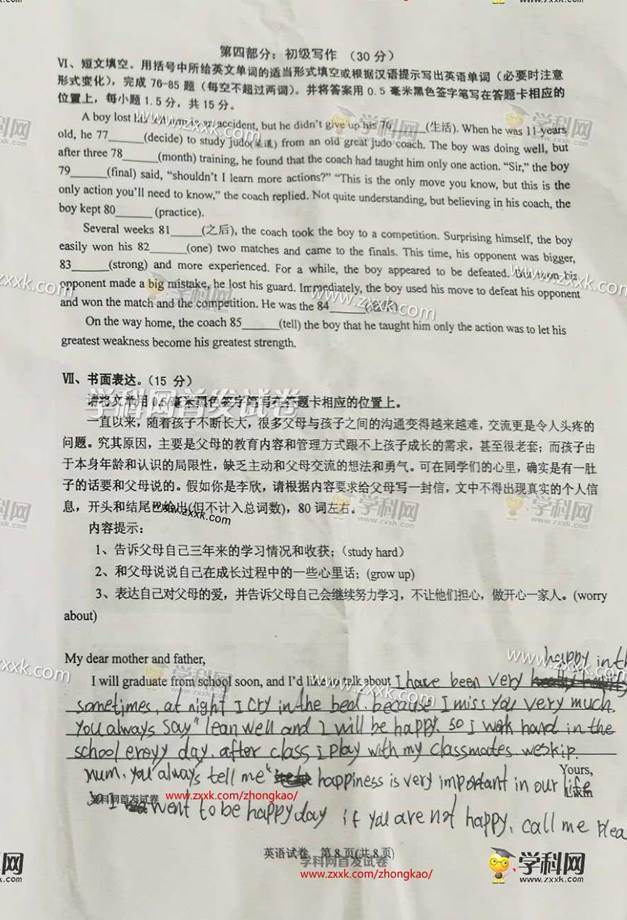 第四部分：初级写作 （30 分）
Ⅵ、短文填空。用括号中所给英文单词的适当形式填空或根据汉语提示写出英语单词（必要时注意
形式变化），完成 76-85 题（每空不超过两词）。并将答案用 0.5 毫米黑色签字笔写在答题卡相应的
位置上，每小题 1.5 分，共 15 分。
A boy lost his accident, but he didn't give up his 76 (生活). When he was 11 years
old, he 77 (decide) to study judo(柔道) from an old great judo coach. The boy was doing well, but
after three 78 (month) training, he found that the coach had taught him only one action. "Sir," the boy
79 (final) said, "shouldn't I learn more actions?" "This is the only move you know, but this is the
only action you'll need to know," the coach replied. Not quite understanding, but believing in his coach, the
boy kept 80 (practice).
Several weeks 81 (之后), the coach took the boy to a competition. Surprising himself, the boy
easily won his 82 (one) two matches and came to the finals. This time, his opponent was bigger,
83 (strong) and more experienced. For a while, the boy appeared to be defeated. But his
opponent made a big mistake, he lost his guard. Immediately, the boy used his move to defeat his opponent
and won the match and the competition. He was the 84
On the way home, the coach 85 (tell) the boy that he taught him only the action was to let his
greatest weakness become his greatest strength.
Ⅶ、书面表达。（15 分）
请将文章用 0.5 毫米黑色签字笔写在答题卡相应的位置上。
一直以来，随着孩子不断长大，很多父母与孩子之间的沟通变得越来越难，交流更是令人头疼的
问题。究其原因，主要是父母的教育内容和管理方式跟不上孩子成长的需求，甚至很老套；而孩子由
于本身年龄和认识的局限性，缺乏主动和父母交流的想法和勇气。可在同学们的心里，确实是有一肚
子的话要和父母说的。假如你是李欣，请根据内容要求给父母写一封信，文中不得出现真实的个人信
息，开头和结尾已给出(但不计入总词数)，80 词左右。
内容提示：
1、告诉父母自己三年来的学习情况和收获；（study hard）
2、和父母说说自己在成长过程中的一些心里话；(grow up)
3、表达自己对父母的爱，并告诉父母自己会继续努力学习，不让他们担心，做开心一家人。(worry
about)
My dear mother and father,
happy in th
I will graduate from school soon, and I'd like to talk about I have been very
sometimes, at night I cry in the bed. because I miss you very much.
You always say "lean well and I will be happy. so I work hard in the
school erevy day. after class, i play with my classmates weskip.
Yours,
mum, you always tell me" happiness is very important in our life
Li Xin
so I went to be happy day if you are not happy, call me plea
英语试卷 第 8 页(共 8 页)
学科网首发试卷
www.zxxk.com/zhongkao/
学科网首发试卷
www.zxxk.com/zhongkao/
学科网首发试卷
学科网
www.zxxk.com